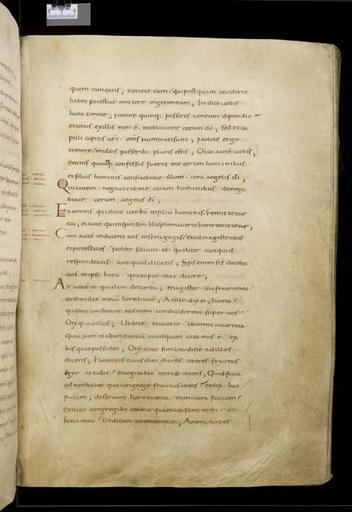 quem timeatis; timete eum qui postquam occiderit
habet potestatem mittere in gehennam; Ita dico vobis
hunc timete; Nonne quinq; passeres veneunt dipundio
et unus ex illis non ÷ in oblivione coram dō; sed et ca
pilli capitis vr̄i om̄s numerati sunt; Nolite ergo
timere multis passerib; pluris estis; Dico autē vobis,
omnis quicumq; confessus fuerit me coram hominibus
et filius hominis confitebitur illum cora angelis dī;
Qui autem negaverit me coram hominibus denega
bitur coram angelis dī;
Et omnis qui dicit verbū in filiū hominis remittetur
illi; ei autē qui in spm̄ scm̄ blasphemaverit non remittetur;
Cum autē inducent vos in synagogas et ad magistratus
et potestates Nolite solliciti ee qualiter aut quid
respondeatis aut quid dicatis; Sps enim scs docebit
vos
Ait autē ei quidam de turba; magister dic fratri meo
ut dividat mecū hereditatē; At ille dixit ei; homo
quis me constituit iudicem aut divisorem super vos
Dixitq; ad illos; Videte et cavete ab omni avaritia
quia non in abundantia cuiusquam vita eius ÷ ex
his quae possidet; Dixit autē similitudinē ad illos
dicens; Hominis cuiusdam divitis uberes fructus
ager attulit et cogitabat intra se dicens; Quid faciā
qd non habeo quo congregē fructus meos et dixit hoc
faciam; destruam horrea mea et maiora faciam
et illuc congregabo omnia quae nata sunt mihi et
bona mea et dicam animae meae; Anima habes